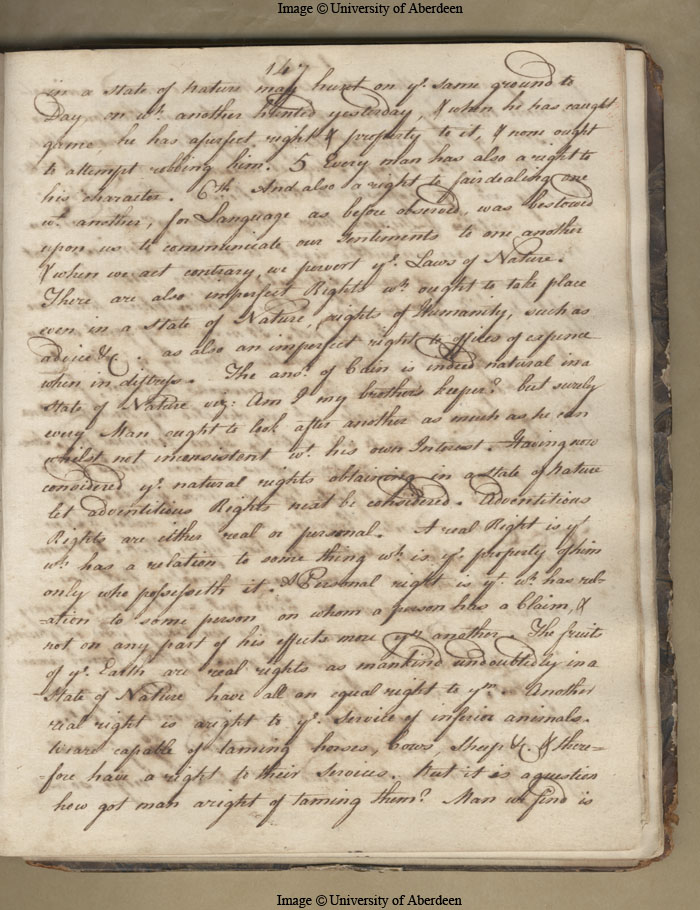 Image © University of Aberdeen
147
in a State of Nature may hunt on yᵉ. same ground to
Day on wʰ. another hunted yesterday, & when he has caught
game he has a perfect right & property to it, & none ought
to attempt robbing him. 5 Every man has also a right to
his character. 6th And also a right to fair dealing one
wᵗ. another, for Language as before observed, was bestowed
upon us to communicate our Sentiments to one another
& when we act contrary, we pervert yᵉ. Laws of Nature.
There are also imperfect Rights wʰ. ought to take place
even in a State of Nature, rights of Humanity, such as
advice &c. as also an imperfect right to offices of expence
when in distress. The ansʳ. of Cain is indeed natural in a
State of Nature viz: Am I my brothers keeper? but surely
every Man ought to look after another as much as he can
whilst not inconsistent wᵗ. his own Interest. Having now
considered yᵉ. natural rights obtaining in a State of Nature
let adventitious Rights next be considered. Adventitious
Rights are either real or personal. A real Right is yᵗ.
wʰ. has a relation to some thing wʰ. is yᵉ. property of him
only who possesseth it. A Personal right is yᵗ. wʰ. has rel-
-ation to some person, on whom a person has a Claim, &
not on any part of his effects more yⁿ another. The fruits
of yᵉ. Earth are real rights as mankind undoubtedly in a
State of Nature have all an equal right to yᵐ. Another
real right is a right to yᵉ. Service of inferior animals.
We are capable of taming horses, Cows, Sheep &c. & there=
=fore have a right to their Services. But it is a question
how got man a right of taming them? Man we find is
Image © University of Aberdeen